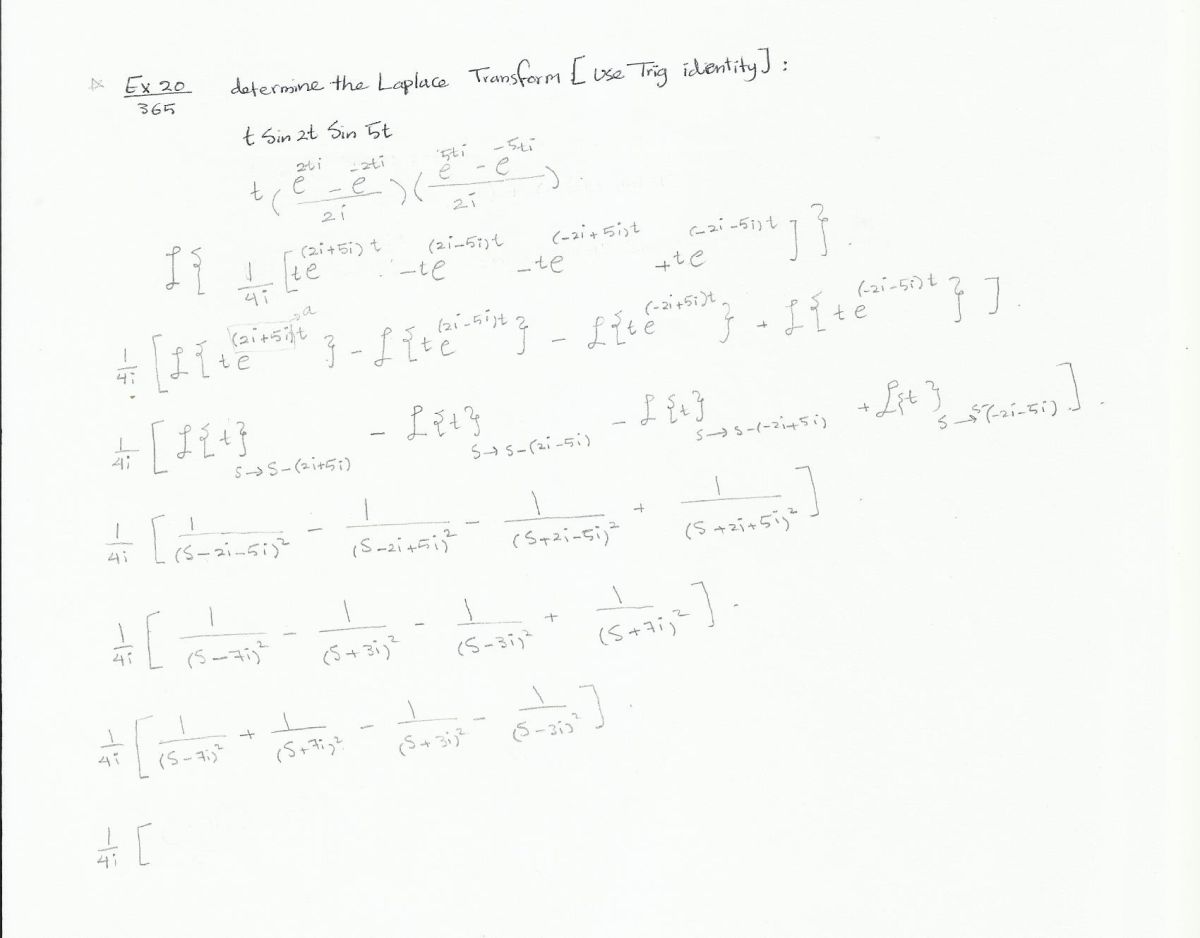 Ex 20 determine the Laplace Transform [use Trig identity] :
365
t Sin 2t Sin 5t
t ( (e^{2ti} - e^{-2ti}) / 2i ) ( (e^{5ti} - e^{-5ti}) / 2i ) .
ℒ{ 1/4i [ te^{(2i+5i)t} - te^{(2i-5i)t} - te^{(-2i+5i)t} + te^{(-2i-5i)t} ] } .
1/4i [ ℒ{ te^{(2i+5i)t} } - ℒ{ te^{(2i-5i)t} } - ℒ{ te^{(-2i+5i)t} } + ℒ{ te^{(-2i-5i)t} } ] . → a
1/4i [ ℒ{t}_{s→s-(2i+5i)} - ℒ{t}_{s→s-(2i-5i)} - ℒ{t}_{s→s-(-2i+5i)} + ℒ{t}_{s→s-(-2i-5i)} ] .
1/4i [ 1/(S-2i-5i)² - 1/(S-2i+5i)² - 1/(S+2i-5i)² + 1/(S+2i+5i)² ] .
1/4i [ 1/(S-7i)² - 1/(S+3i)² - 1/(S-3i)² + 1/(S+7i)² ] .
1/4i [ 1/(S-7i)² + 1/(S+7i)² - 1/(S+3i)² - 1/(S-3i)² ] .
1/4i [